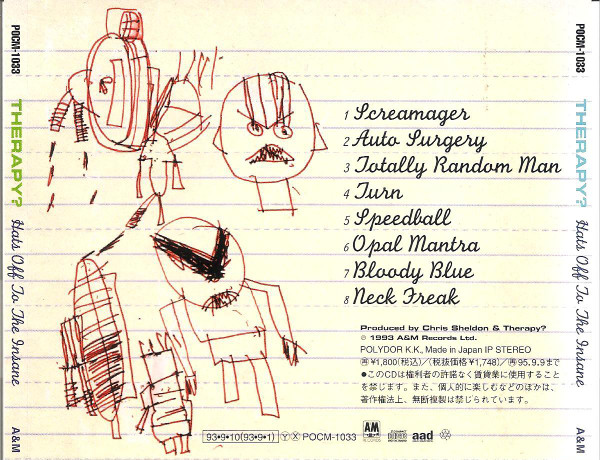 POCM-1033
THERAPY?
Hats Off To The Insane
A&M
1 Screamager
2 Auto Surgery
3 Totally Random Man
4 Turn
5 Speedball
6 Opal Mantra
7 Bloody Blue
8 Neck Freak
Produced by Chris Sheldon & Therapy?
℗ 1993 A&M Records Ltd.
POLYDOR K.K., Made in Japan IP STEREO
¥1,800(税込)/(税抜価格¥1,748)/95.9.9まで
●このCDは権利者の許諾なく賃貸業に使用すること
を禁じます。また、個人的に楽しむなどのほかは、
著作権法上、無断複製は禁じられています。
93•9•10(93•9•1) Ⓨ Ⓧ POCM-1033
AM
aad
POCM-1033
THERAPY?
Hats Off To The Insane
A&M